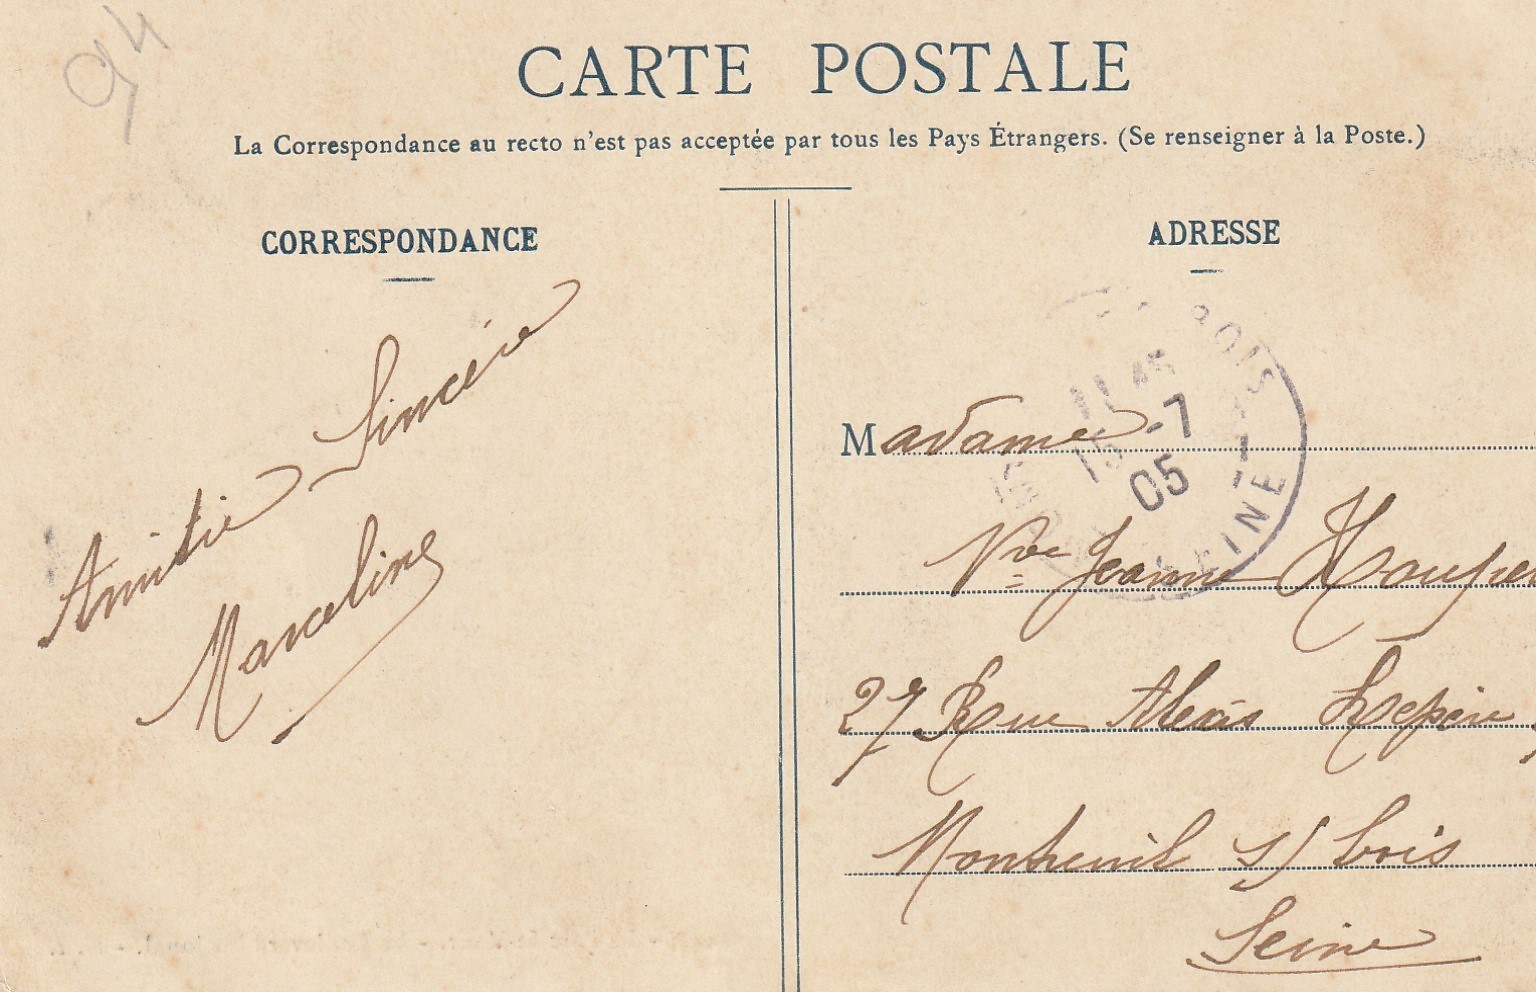 94
CARTE POSTALE
La Correspondance au recto n'est pas acceptée par tous les Pays Étrangers. (Se renseigner à la Poste.)
CORRESPONDANCE
ADRESSE
Amitié Sincère
Marceline
BOIS
11 45
15 -7
05
SEINE
Madame
Vve Jeanne
27 Rue Alexis Lepère
Montreuil s/ bois
Seine